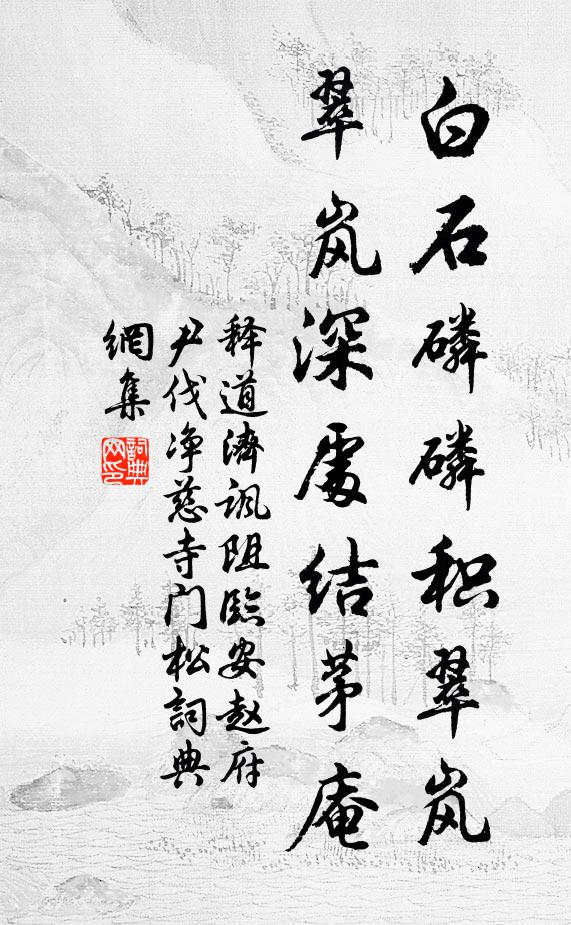 白石磷磷积翠岚
翠岚深處结茅庵
释道濟讽阻臨安赵府
尹伐净慈寺门松詞典
網集
詞典
网印